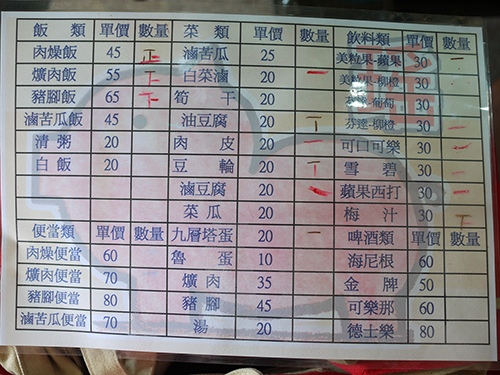 飯類 單價 數量 菜類 單價 數量 飲料類 單價 數量
肉燥飯 45 正 滷苦瓜 25 美粒果-蘋果 30 一
爌肉飯 55 下 白菜滷 20 一 美粒果-柳橙 30
豬腳飯 65 下 筍干 20 芬達-葡萄 30
滷苦瓜飯 45 油豆腐 20 丅 芬達-柳橙 30 一
清粥 20 肉皮 20 一 可口可樂 30 一
白飯 20 豆輪 20 丅 雪碧 30 一
滷豆腐 20 一 蘋果西打 30 一
菜瓜 20 梅汁 30
便當類 單價 數量 九層塔蛋 20 一 啤酒類 單價 數量
肉燥便當 60 魯蛋 10 海尼根 60
爌肉便當 70 爌肉 35 金牌 50
豬腳便當 80 豬腳 45 可樂那 60
滷苦瓜便當 70 湯 20 德士樂 80